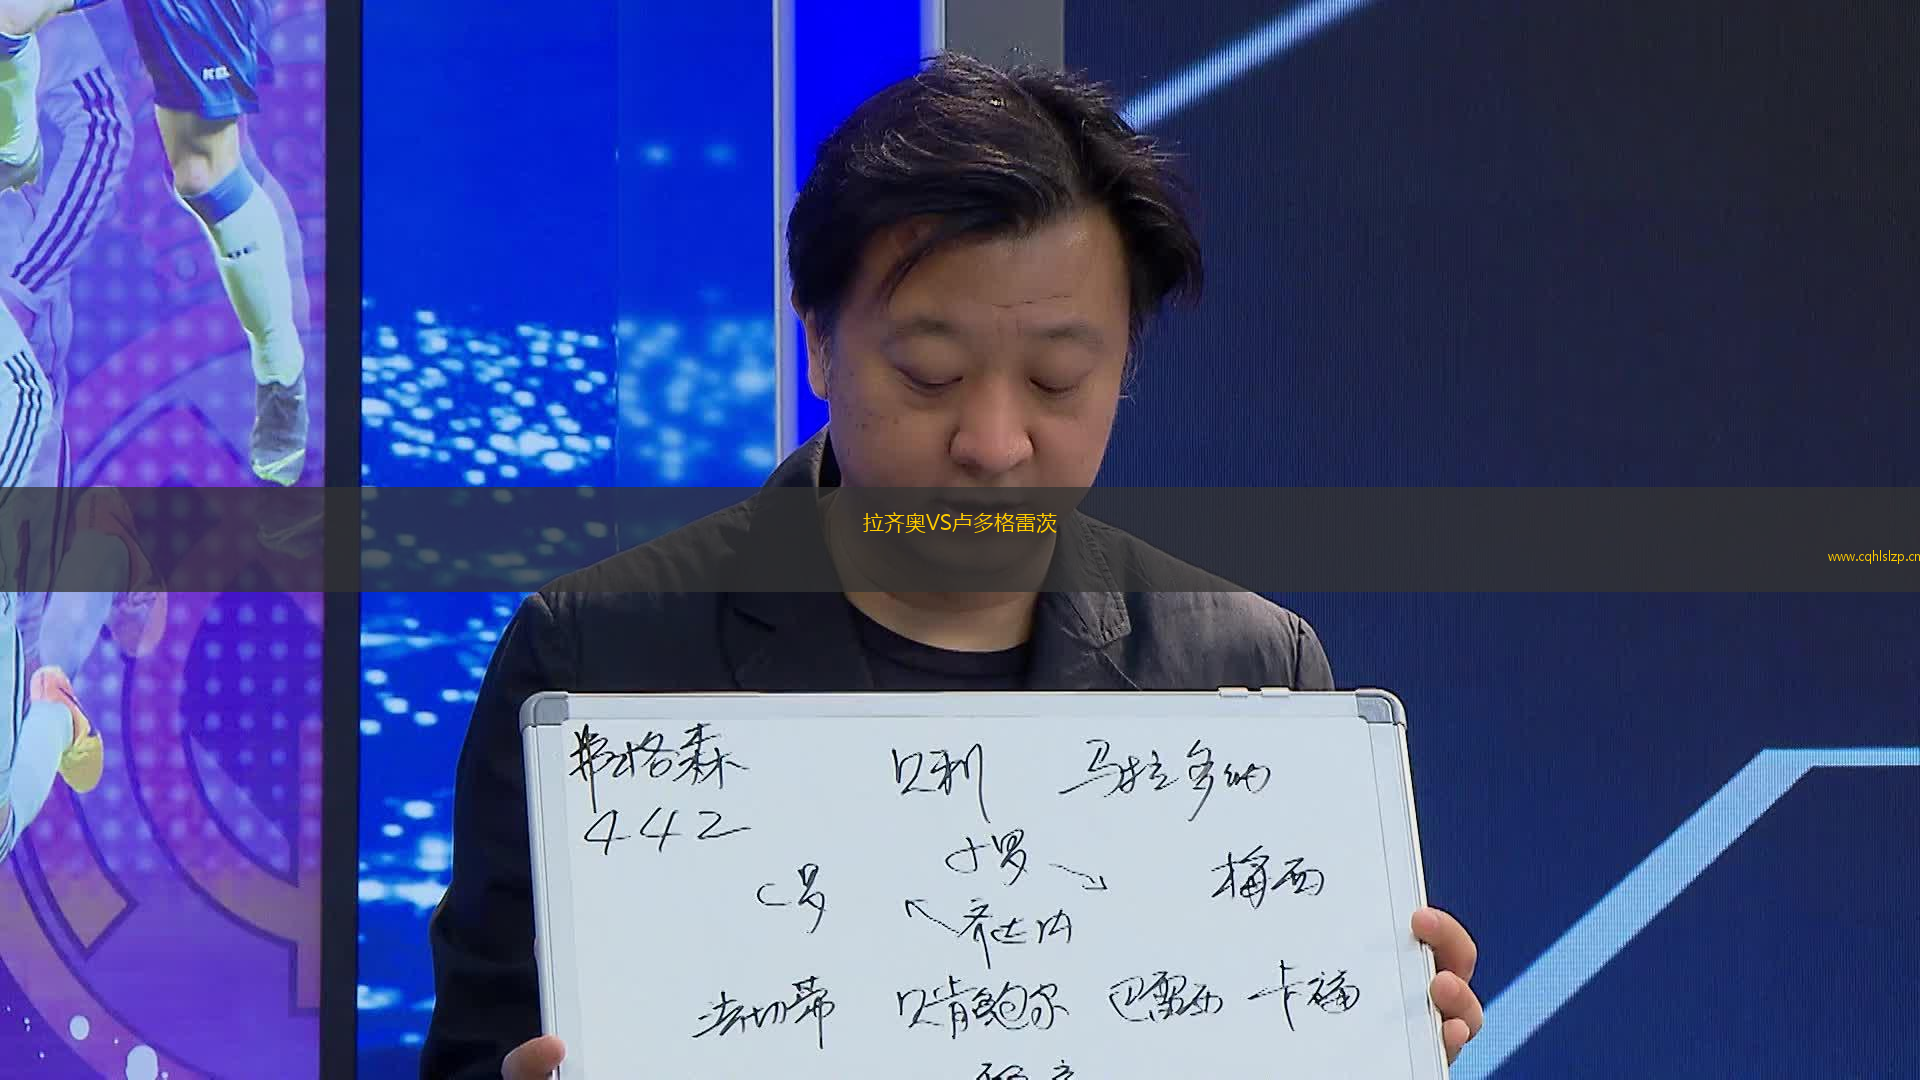 拉齐奥VS卢多格雷茨
www.cqhlslzp.cn
弗格森 贝利 马拉多纳
442
小罗
C罗 梅西
齐达内
法切蒂 贝肯鲍尔 巴雷西 卡福